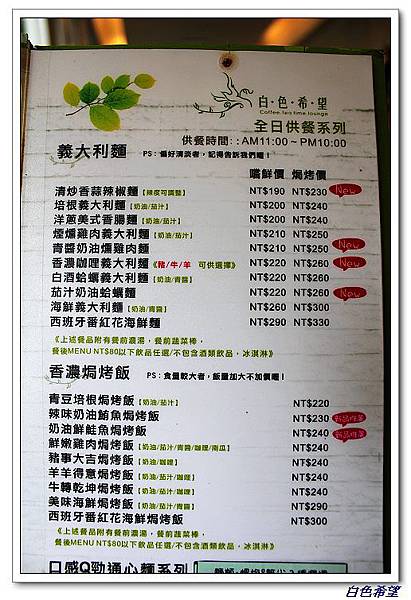 白・色・希・望
Coffee.Tea time lounge
全日供餐系列
供餐時間：:AM11:00~PM10:00
義大利麵 PS：偏好清淡者，記得告訴我們喔！
嚐鮮價 焗烤價
清炒香蒜辣椒麵【辣度可調整】 NT$190 NT$230 New
培根義大利麵【奶油/茄汁】 NT$200 NT$240
洋蔥美式香腸麵【奶油/茄汁】 NT$200 NT$240
煙燻雞肉義大利麵【奶油/茄汁】 NT$210 NT$250
青醬奶油燻雞肉麵 NT$210 NT$250 New
香濃咖哩義大利麵《豬/牛/羊 可供選擇》 NT$220 NT$260 New
白酒蛤蠣義大利麵【奶油/青醬】 NT$220 NT$260
茄汁奶油蛤蠣麵 NT$220 NT$260 New
海鮮義大利麵【奶油/青醬】 NT$260 NT$300
西班牙番紅花海鮮麵 NT$290 NT$330
《上述餐品附有餐前濃湯，餐前蔬菜棒，
餐後MENU NT$80以下飲品任選/不包含酒類飲品，冰淇淋》
香濃焗烤飯 PS：食量較大者，飯量加大不加價喔！
青豆培根焗烤飯【奶油/茄汁】 NT$220
辣味奶油鮪魚焗烤飯 NT$230
奶油鮮鮭魚焗烤飯 NT$240
鮮嫩雞肉焗烤飯【奶油/茄汁/青醬/咖哩/南瓜】 NT$240
豬事大吉焗烤飯【奶油/茄汁/咖哩】 NT$240
羊羊得意焗烤飯【奶油/茄汁/咖哩】 NT$240
牛轉乾坤焗烤飯【奶油/茄汁/咖哩】 NT$240
美味海鮮焗烤飯【奶油/茄汁/青醬】 NT$290
西班牙番紅花海鮮焗烤飯 NT$300
《上述餐品附有餐前濃湯，餐前蔬菜棒，
餐後MENU NT$80以下飲品任選/不包含酒類飲品，冰淇淋》
口感Q勁通心麵系列
白色希望